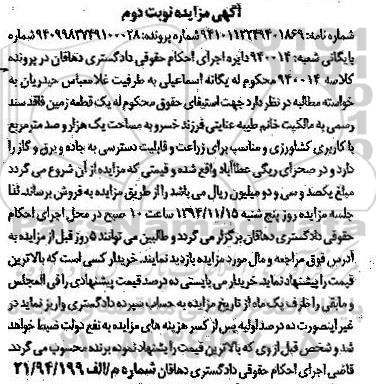 آگهی مزایده نوبت دوم
شماره نامه: ۹۴۱۰۱۱۳۲۳۹۴۰۱۸۶۹ شماره پرونده: ۹۴۰۹۹۸۳۷۴۹۱۰۰۰۲۸ شماره
بایگانی شعبه: ۹۴۰۰۱۴ دایره اجرای احکام حقوقی دادگستری دهاقان در پرونده
کلاسه ۹۴۰۰۱۴ محکوم له یگانه اسماعیلی به طرفیت غلامعباس حیدریان به
خواسته مطالبه در نظر دارد جهت استیفای حقوق محکوم له یک قطعه زمین فاقد سند
رسمی به مالکیت خانم طیبه عنایتی فرزند خسرو به مساحت یک هزار و صد مترمربع
با کاربری کشاورزی و مناسب برای زراعت و قابلیت دسترسی به جاده و برق و گاز را
دارد و در صحرای ریگی عطاآباد واقع شده و قیمتی که مزایده از آن شروع می گردد
مبلغ یکصد و سی و دو میلیون ریال می باشد را از طریق مزایده به فروش برساند. لذا
جلسه مزایده روز پنج شنبه ۱۳۹۴/۱۱/۱۵ ساعت ۱۰ صبح در محل اجرای احکام
حقوقی دادگستری دهاقان برگزار می گردد و طالبین می توانند ۵ روز قبل از مزایده به
آدرس فوق مراجعه و مال مورد مزایده بازدید نمایند. خریدار کسی است که بالاترین
قیمت را پیشنهاد نماید خریدار می بایستی ده درصد قیمت پیشنهادی را فی المجلس
و مابقی را ظرف یک ماه از تاریخ مزایده به حساب سپرده دادگستری واریز نماید در
غیر اینصورت ده درصد اولیه پس از کسر هزینه های مزایده به نفع دولت ضبط خواهد
شد و شخص قبل از وی که بالاترین قیمت را پشنهاد نموده برنده محسوب می گردد.
قاضی اجرای احکام حقوقی دادگستری دهاقان شماره م/الف ۲۱/۹۴/۱۹۹